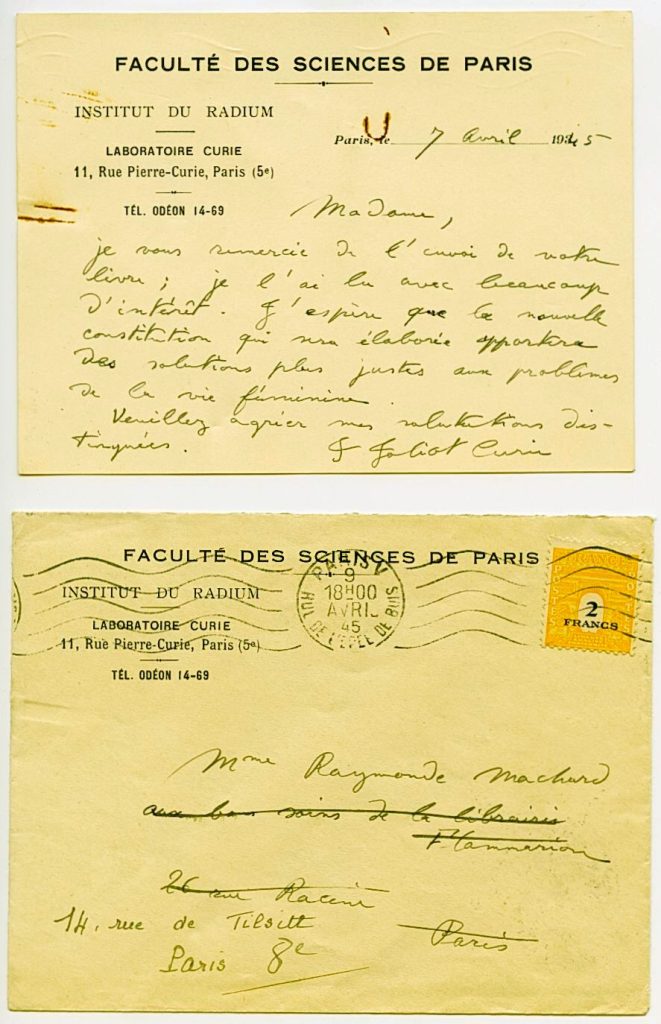 FACULTÉ DES SCIENCES DE PARIS
INSTITUT DU RADIUM
LABORATOIRE CURIE
11, Rue Pierre-Curie, Paris (5e)
TÉL. ODÉON 14-69
Paris, le 7 avril 1945
Madame,
je vous remercie de l'envoi de votre
livre ; je l'ai lu avec beaucoup
d'intérêt. J'espère que la nouvelle
constitution qui sera élaborée apportera
des solutions plus justes aux problèmes
de la vie féminine.
Veuillez agréer mes salutations dis-
tinguées.
I Joliot Curie
FACULTÉ DES SCIENCES DE PARIS
INSTITUT DU RADIUM
LABORATOIRE CURIE
11, Rue Pierre-Curie, Paris (5e)
TÉL. ODÉON 14-69
PARIS V
9
18H00
AVRIL
45
RUE DE L'EPEE DE BOIS
FRANCE
POSTES
2
FRANCS
Mme Raymonde Machard
aux bons soins de la librairie
Flammarion
26 rue Racine
Paris
14, rue de Tilsitt
Paris 8e